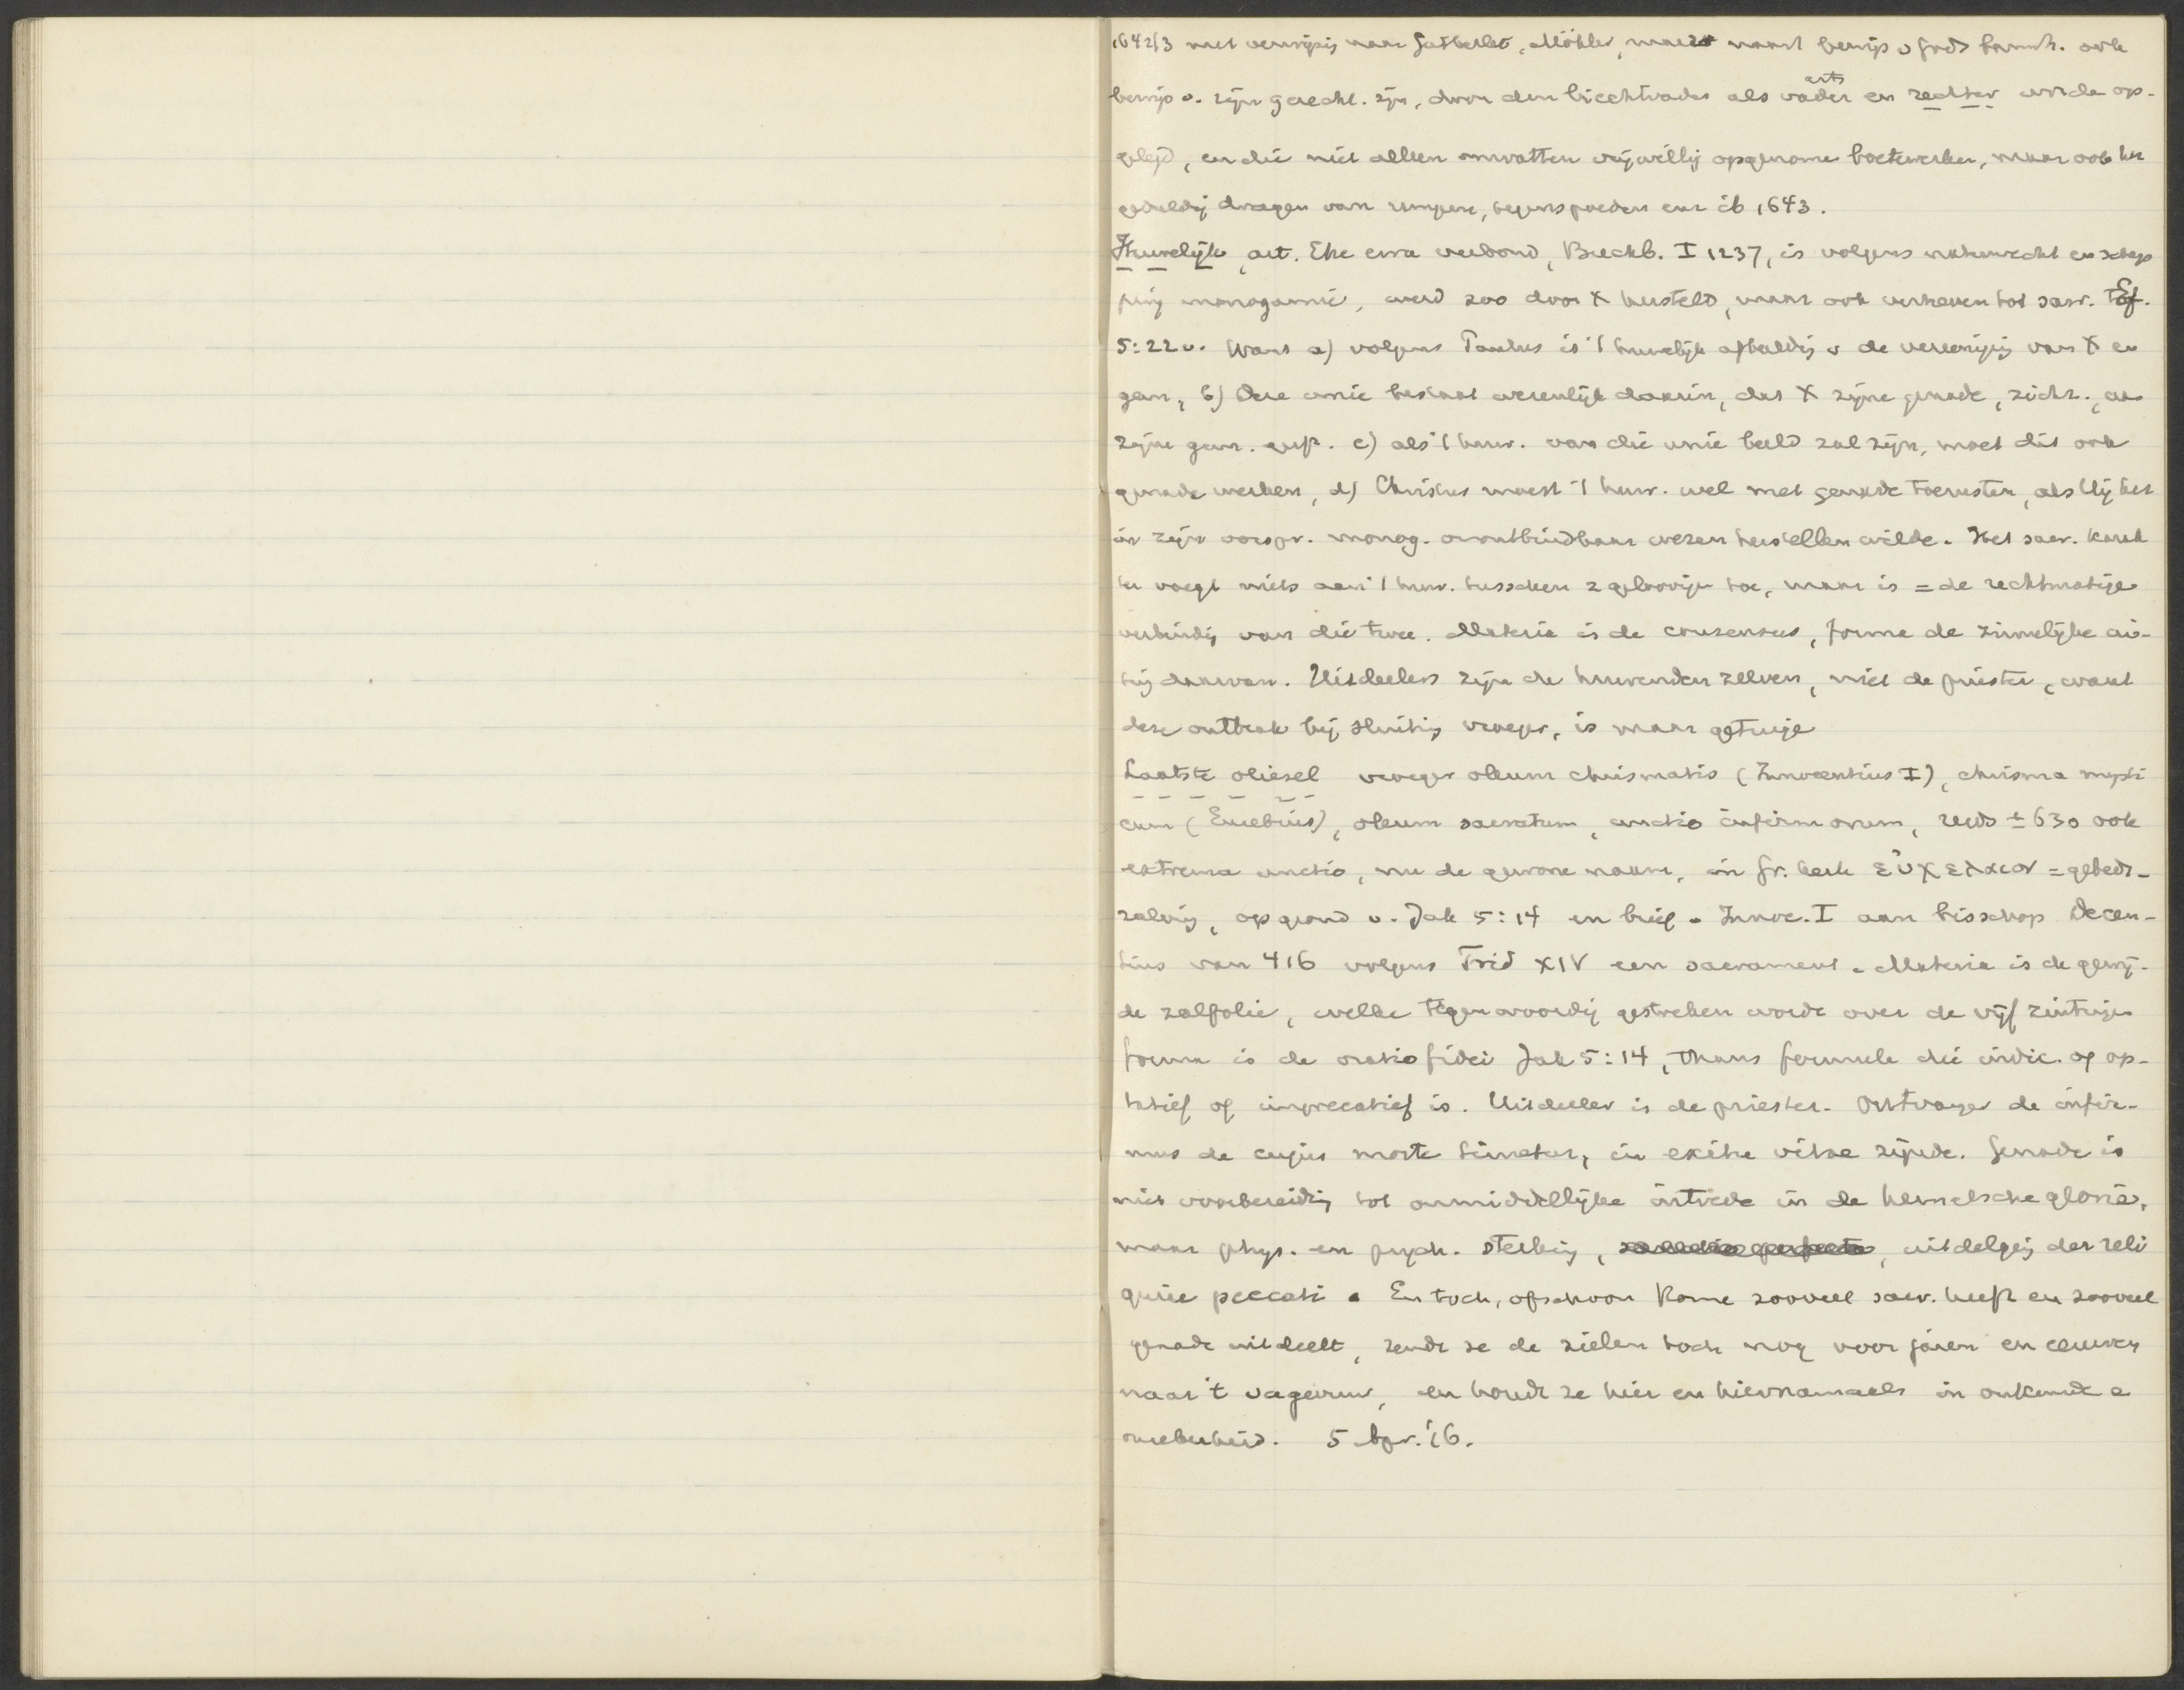 1642/3 met verwijzing naar Gutberlet, Möhler, naast bewijs v Gods barmh. ook
bewijs v. zijn gerecht. zijn, door den biechtvader als vader arts en rechter worden op-
gelegd, en die niet alleen omvatten vrijwillig opgenomen boetewerken, maar ook het
geduldig dragen van rampen, tegenspoeden enz ib 1643.
Huwelijk, art. Ehe verbond, Buchb. I 1237, is volgens natuurrecht en schep
ping monogamie, werd zoo door X hersteld, maar ook verheven tot sacr. Ef.
5:22v. Want a) volgens Paulus is 't huwelijk afbeeldig v de vereenigig van X en
gem, b) Deze unie bestaat wezenlijk daarin, dat X zijne genade, zichz., aan
zijne gem. geeft. c) als 't huw. van die unie beeld zal zijn, moet dit ook
genade werken, d) Christus moest 't huw. wel met genade toerusten, als Hij het
in zijn oorspr. monog. onontbindbaar wezen herstellen wilde. Het sacr. karak
ter voegt niets aan 't huw. tusschen 2 geloovigen toe, maar is = de rechtmatige
verbindig van die twee. Materie is de consensus, forma de zinnelijke ui-
ting daarvan. Uitdeelers zijn de huwenden zelven, niet de priester, want
deze ontbrak bij sluiting vroeger, is maar getuige
Laatste oliesel vroeger oleum chrismatis (Innocentius I), chrisma mysti
cum (Eusebius), oleum sacratum, unctio infirmorum, reeds ± 630 ook
extrema unctio, nu de gewone naam, in Gr. kerk εὐχελαιον = gebeds-
zalvig, op grond v. Jak 5:14 en brief v Innoc. I aan bisschop Decen-
tius van 416 volgens Trid XIV een sacrament. Materie is de gewij-
de zalfolie, welke tegenwoordig gestreken wordt over de vijf zintuigen
forma is de oratio fidei Jak 5:14, thans formule die indic. of op-
tatief of imprecatief is. Uitdeeler is de priester. Ontvanger de infir-
mus de cujus morte timetur, in exitu vitae zijnde. Genade is
niet voorbereiding tot onmiddellijke intrede in de hemelsche glorie,
maar phys. en psych. sterking, uitdelging der reli
quiae peccati. En toch, ofschoon Rome zooveel sacr. heeft en zooveel
genade uitdeelt, zendt ze de zielen toch nog voor jaren en eeuwen
naar 't vagevuur, en houdt ze hier en hiernamaals in onkunde e
onzekerheid. 5 Apr. '16.